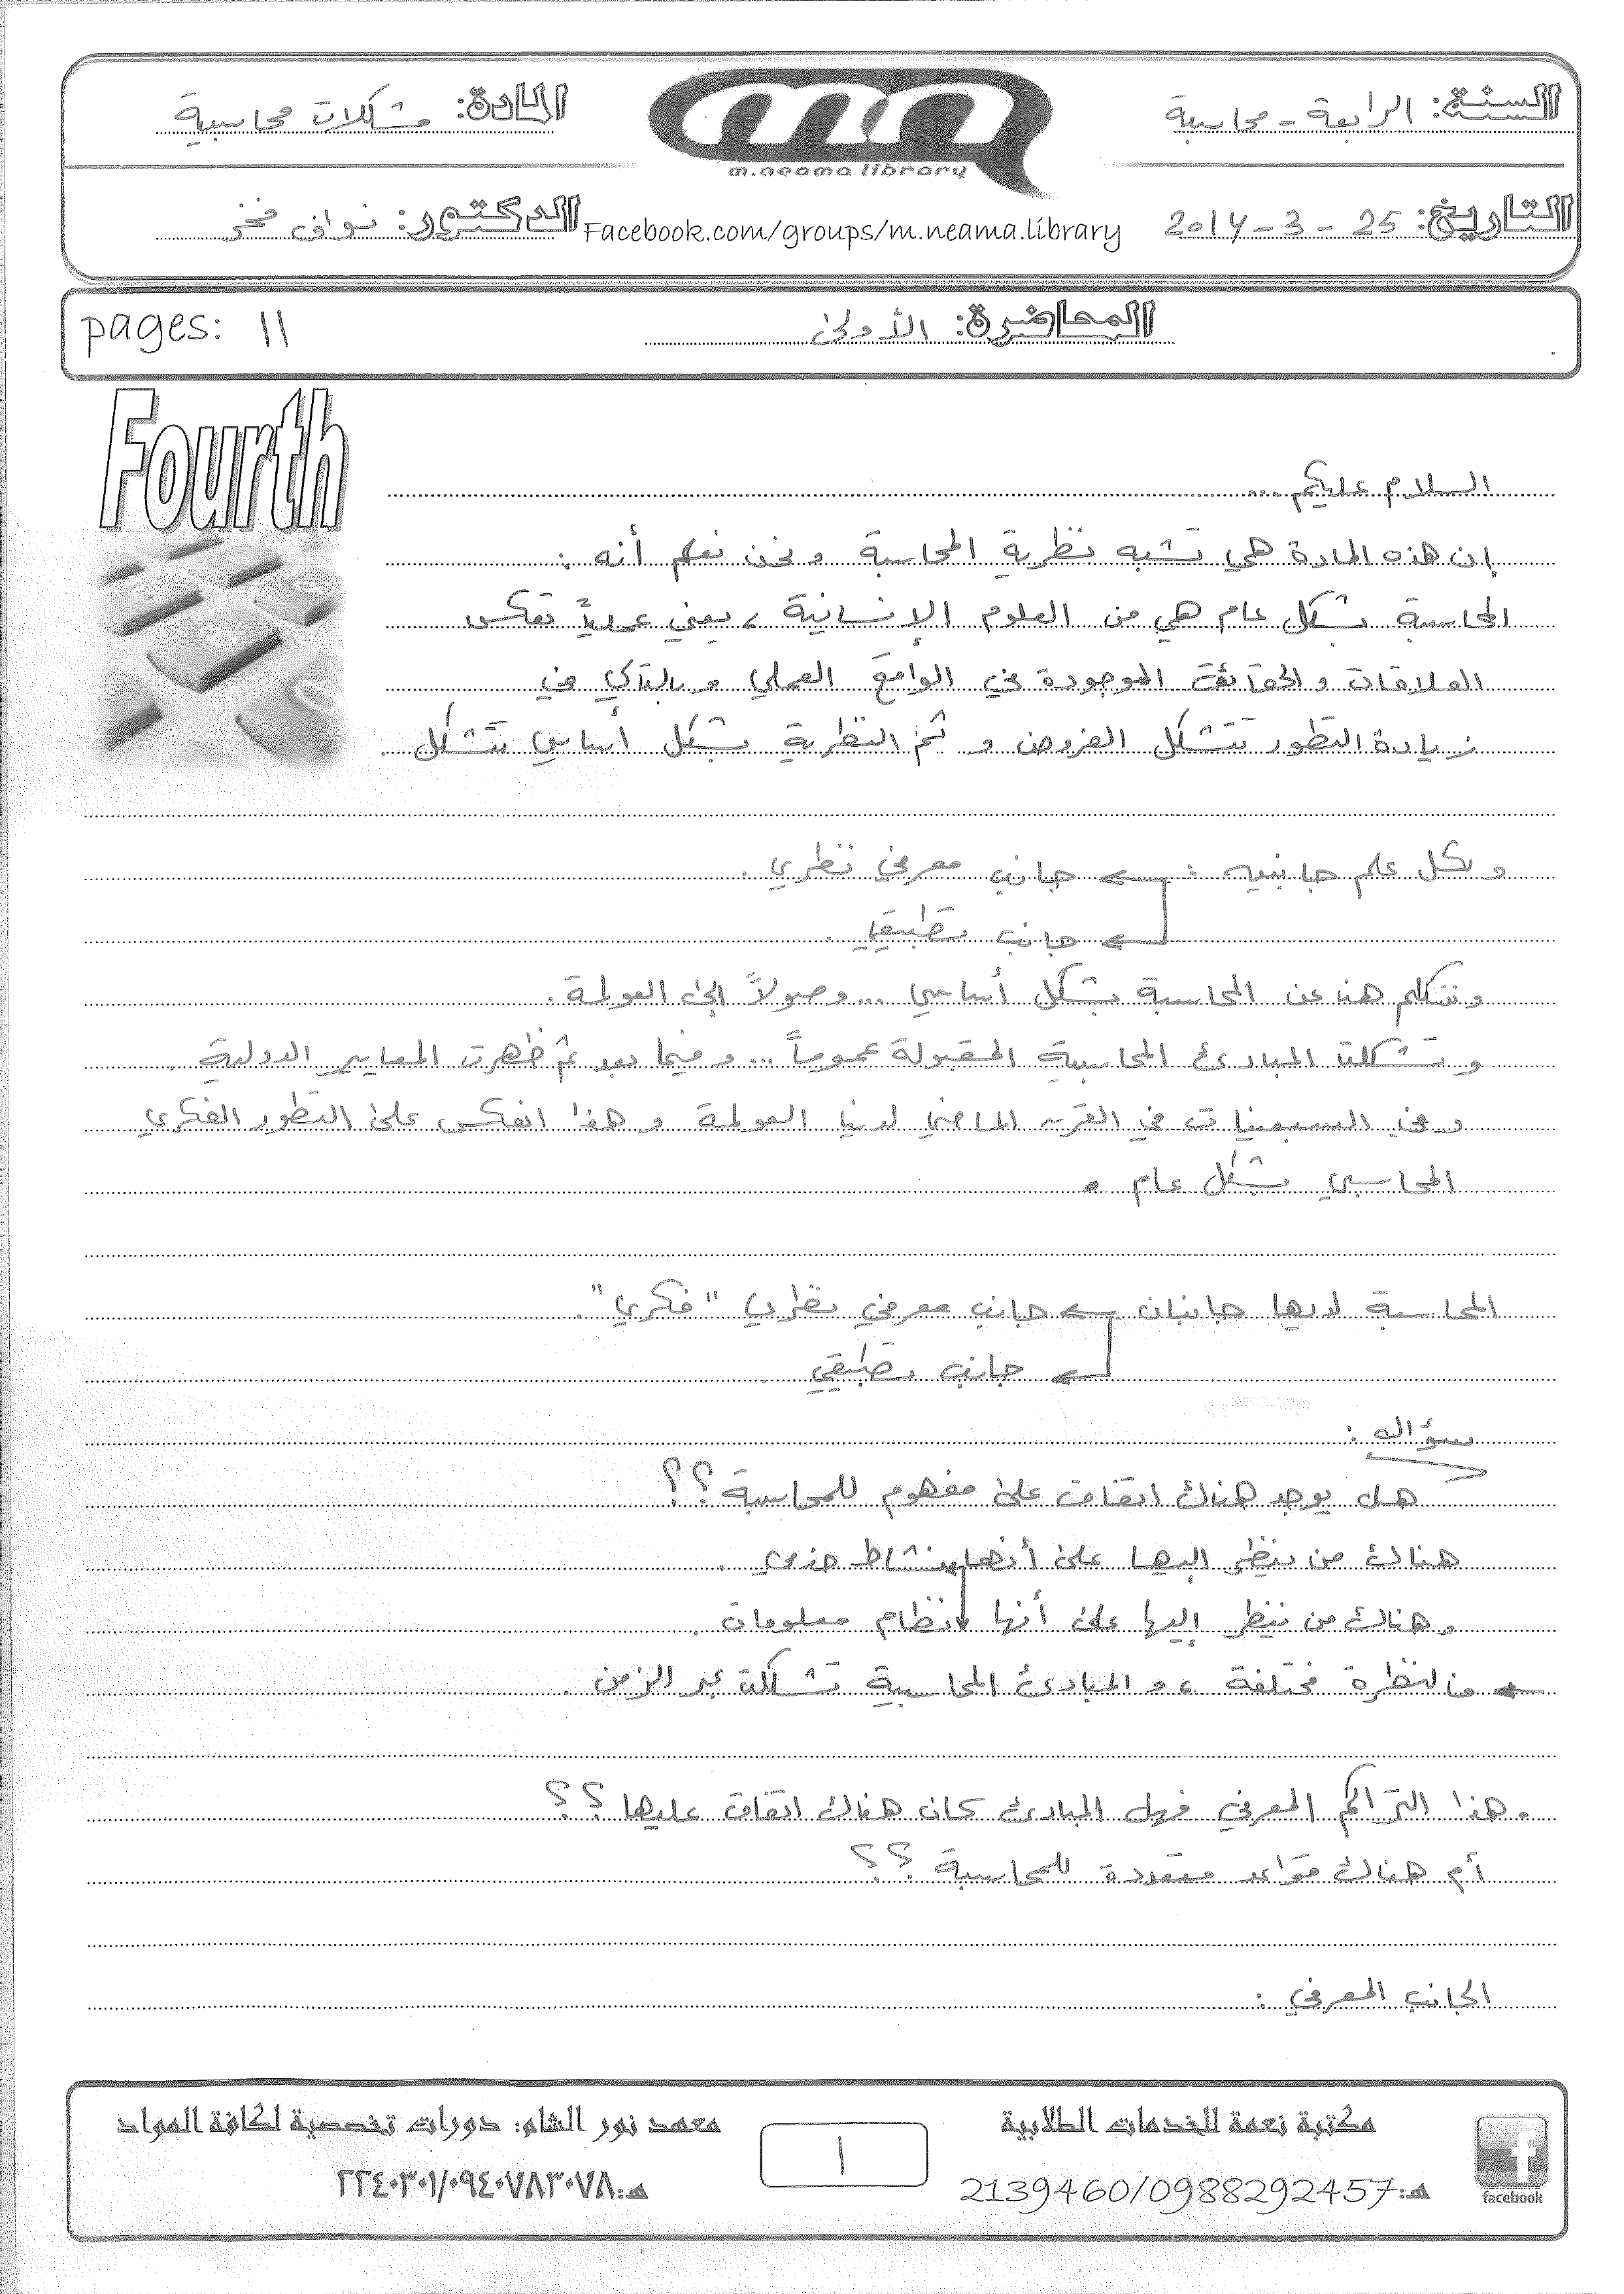 السنة: الرابعة - محاسبة
المادة: مشكلات محاسبية
m.neama.library
التاريخ: 25 - 3 - 2014
Facebook.com/groups/m.neama.library
الدكتور: نواف فخر
المحاضرة: الأولى
pages: 11
Fourth
السلام عليكم ...
إن هذه المادة هي تشبه نظرية المحاسبة ونحن نعلم أنه :
المحاسبة بشكل عام هي من العلوم الإنسانية ، يعني عملياً تعكس
العلاقات والحقائق الموجودة في الواقع العملي وبالتالي في
زيادة التطور تتشكل الفروض و ثم النظرية بشكل أساسي تتشكل .
ولكل علم جانبيه : ← جانب معرفي نظري .
← جانب تطبيقي .
ونتكلم هنا عن المحاسبة بشكل أساسي ... وصولاً إلى العولمة .
وتشكلت المبادئ المحاسبية المقبولة عموماً ... وفيما بعد ثم ظهرت المعايير الدولية .
وفي السبعينات في القرن الماضي لدينا العولمة وهذا انعكس على التطور الفكري
المحاسبي بشكل عام .
المحاسبة لديها جانبان ← جانب معرفي نظري "فكري" .
← جانب تطبيقي .
سؤال :
هل يوجد هناك اتفاق على مفهوم للمحاسبة ؟؟
هناك من ينظر إليها على أنها نشاط خدمي .
وهناك من ينظر إليها على أنها نظام معلومات .
← فالنظرة مختلفة ، و المبادئ المحاسبية تشكلت عبر الزمن .
. هذا التراكم المعرفي فهل المبادئ كان هناك اتفاق عليها ؟؟
أم هناك قواعد متعددة للمحاسبة ؟؟
الجانب المعرفي :
مكتبة نعمة للخدمات الطلابية
هـ: 2139460/0988292457
١
معهد نور الشام: دورات تخصصية لكافة المواد
هـ: ٢٢٤٠٣٠١/٠٩٤٠٧٨٣٠٧٨
facebook